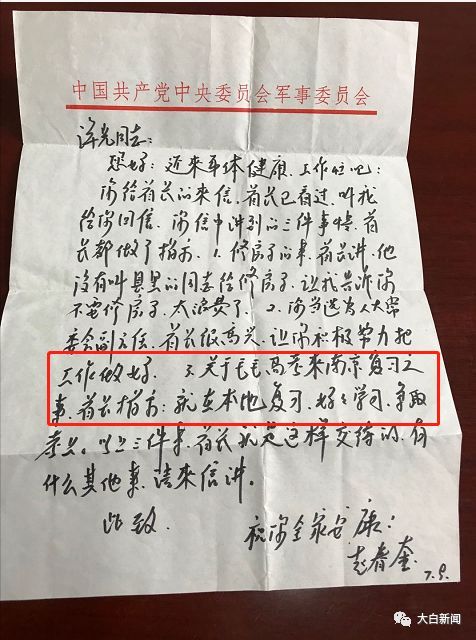 中国共产党中央委员会军事委员会
光同志：
您好：近来身体健康、工作忙吧：
你给首长的来信，首长已看过，叫我
给你回信。你信中讲到的三件事情，首
长都做了指示。1.修房子的事，首长讲，他
没有叫县里的同志给修房子，让我告诉你
不要修房子，太浪费了。2.你当选为人大常
委会副主任，首长很高兴，让你积极努力把
工作做好。3.关于毛毛高考来南京复习之
事，首长指示：就在本地复习，好々学习，争取
考上。以上三件事，首长就是这样交待的，有
什么其他事，请来信讲。
此致
祝你全家安康：
赵春奎
7.9.
大白新闻